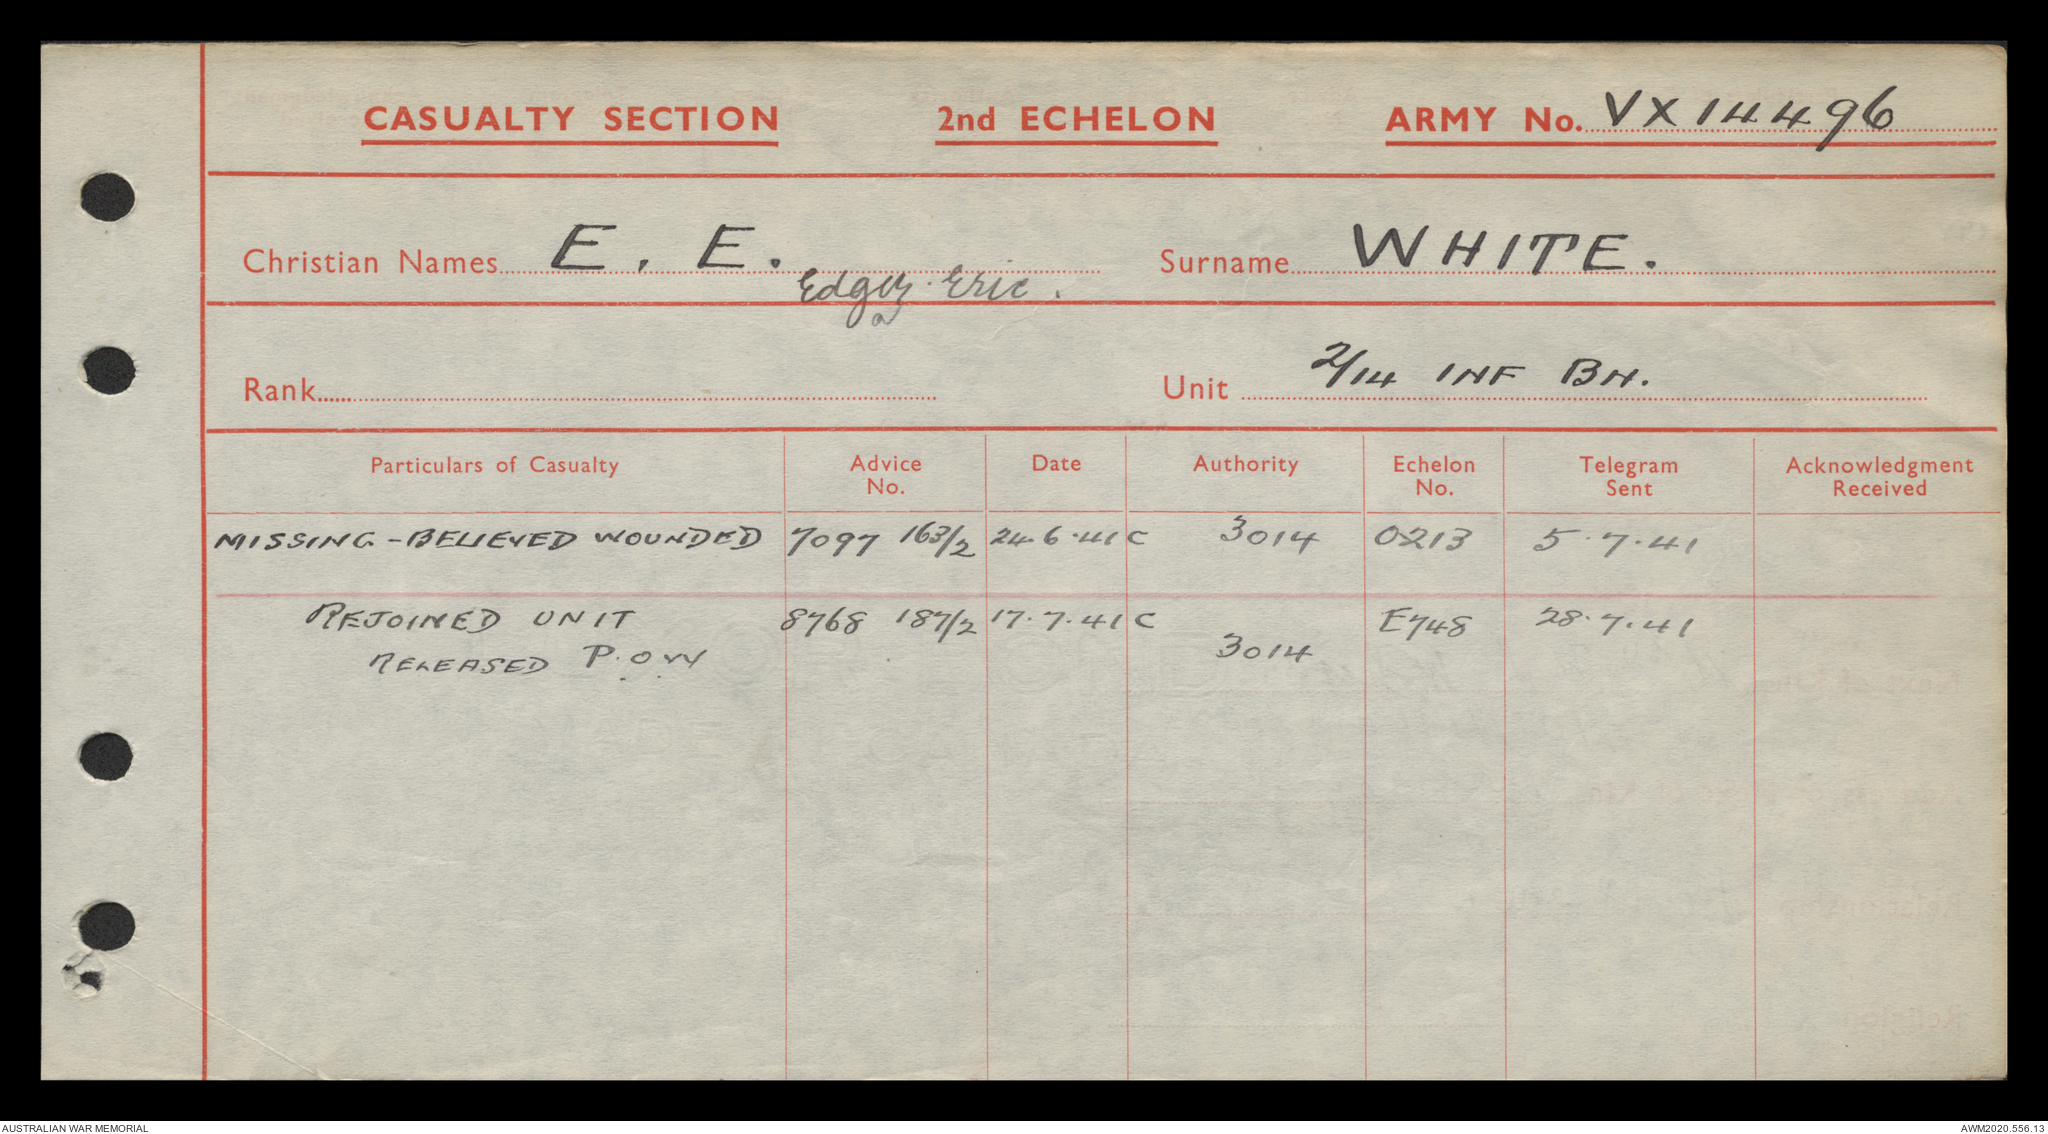 CASUALTY SECTION 2nd ECHELON ARMY No. VX14496
Christian Names E. E. Surname WHITE.
Edgar Eric.
a
Rank Unit 2/14 INF BN.
Particulars of Casualty Advice No. Date Authority Echelon No. Telegram Sent Acknowledgment Received
MISSING - BELIEVED WOUNDED 7097 163/2 24.6.41 C 3014 0213 5.7.41
REJOINED UNIT 8768 187/2 17.7.41 C E748 28.7.41
RELEASED P.O.W 3014
AUSTRALIAN WAR MEMORIAL AWM2020.556.13